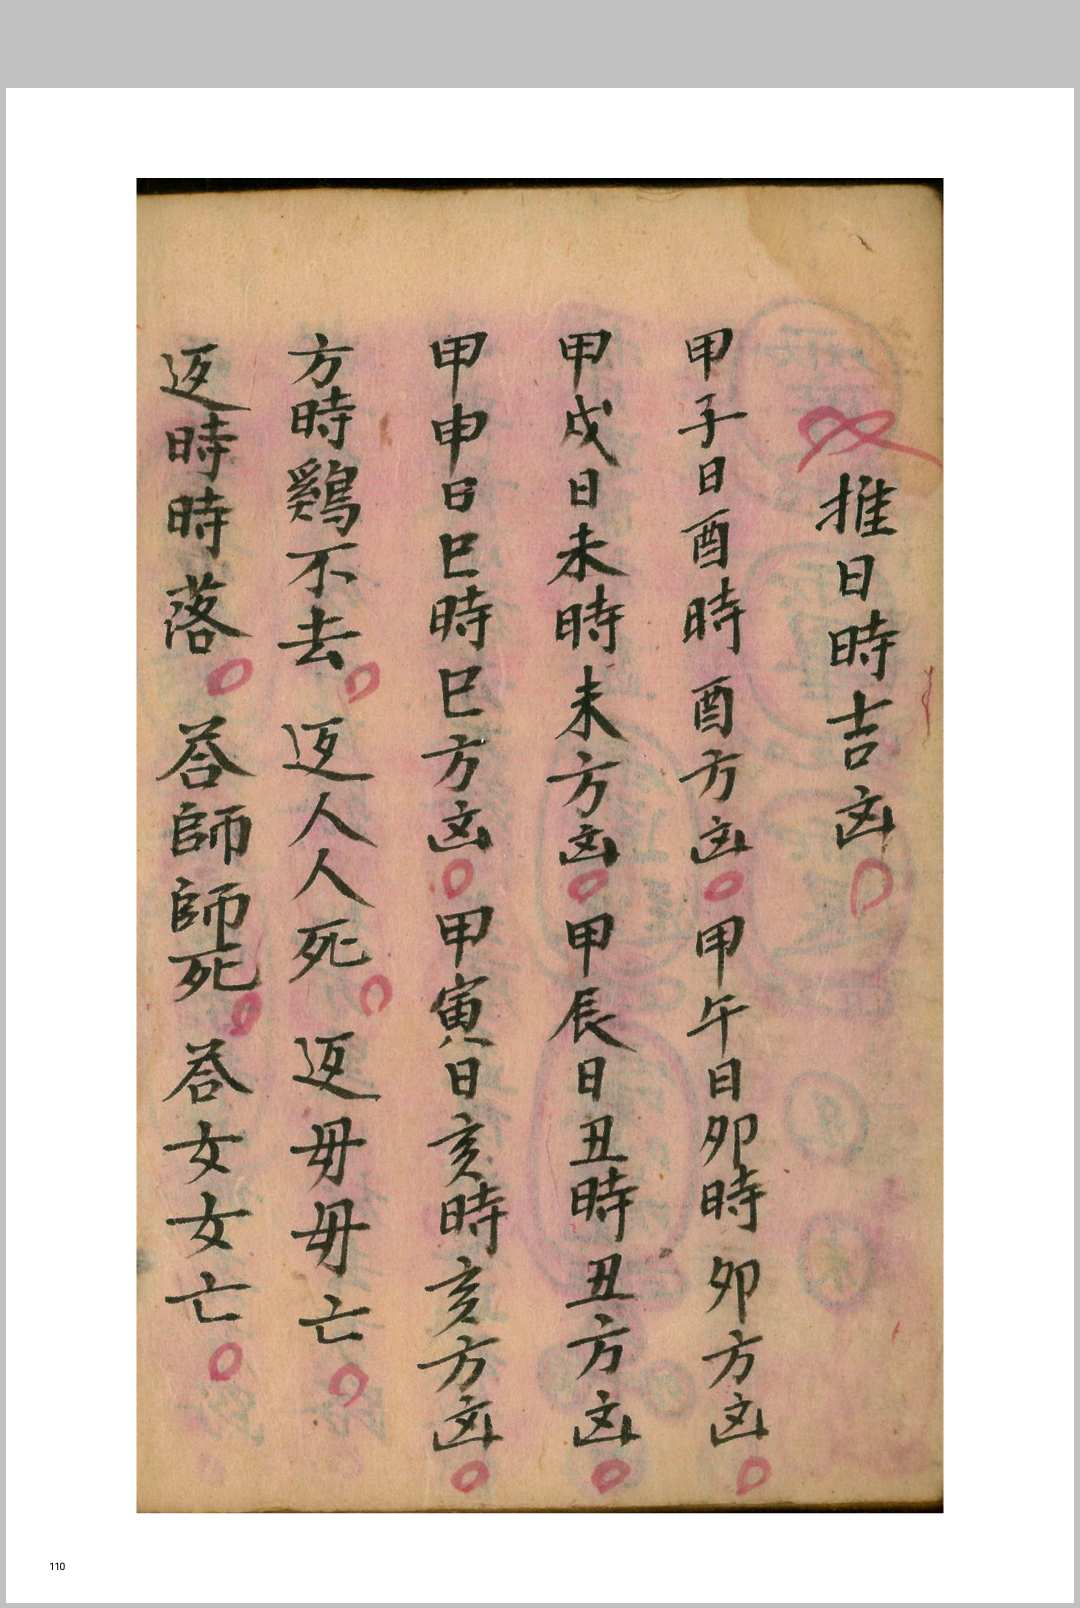 推日時吉凶
甲子日酉時酉方凶 甲午日卯時卯方凶
甲戌日未時未方凶 甲辰日丑時丑方凶
甲申日巳時巳方凶 甲寅日亥時亥方凶
方時鷄不去 返人人死 返毋毋亡
返時時落 荅師師死 荅女女亡
110